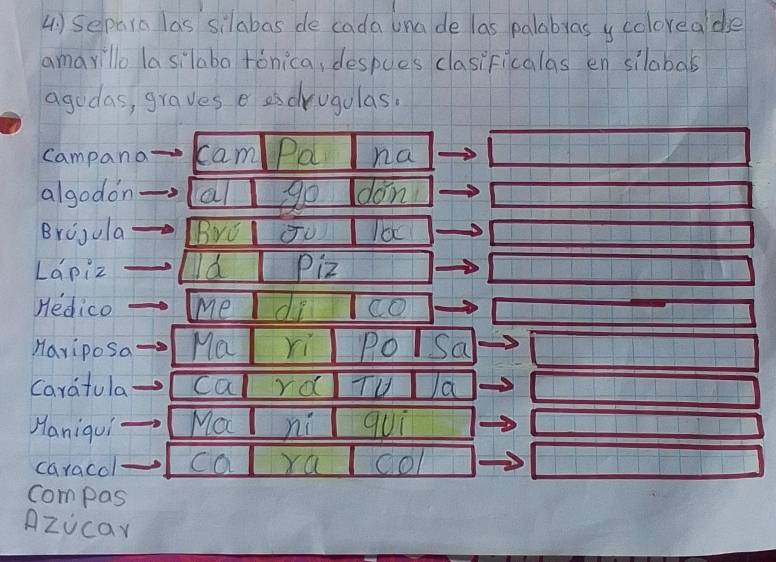 4.) Separa las silabas de cada una de las palabras y colorea de
amarillo la silaba tónica, despues clasificalas en silabas
agudas, graves e esdrugulas.
campana → cam pa na →
algodón → al go dón →
Brújula → Brú Ju la →
Lápiz → lá piz →
Médico → Me di co →
Mariposa → Ma ri po sa →
carátula → ca rá Tu la →
Maniquí → Ma ni qui →
caracol → ca ra col →
compas
Azúcar